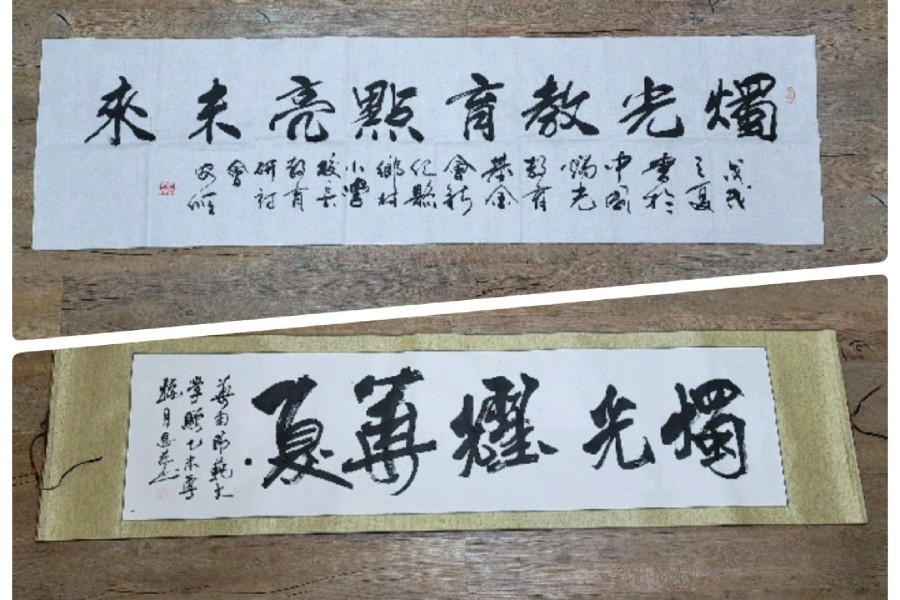 燭光教育點亮未來
戊戌
之夏
書於
中國
燭光
教育
基金
會新
化縣
鄉村
小學
校長
教育
研討
會
燭光耀華夏
華南師範大
學贈乙未季
月